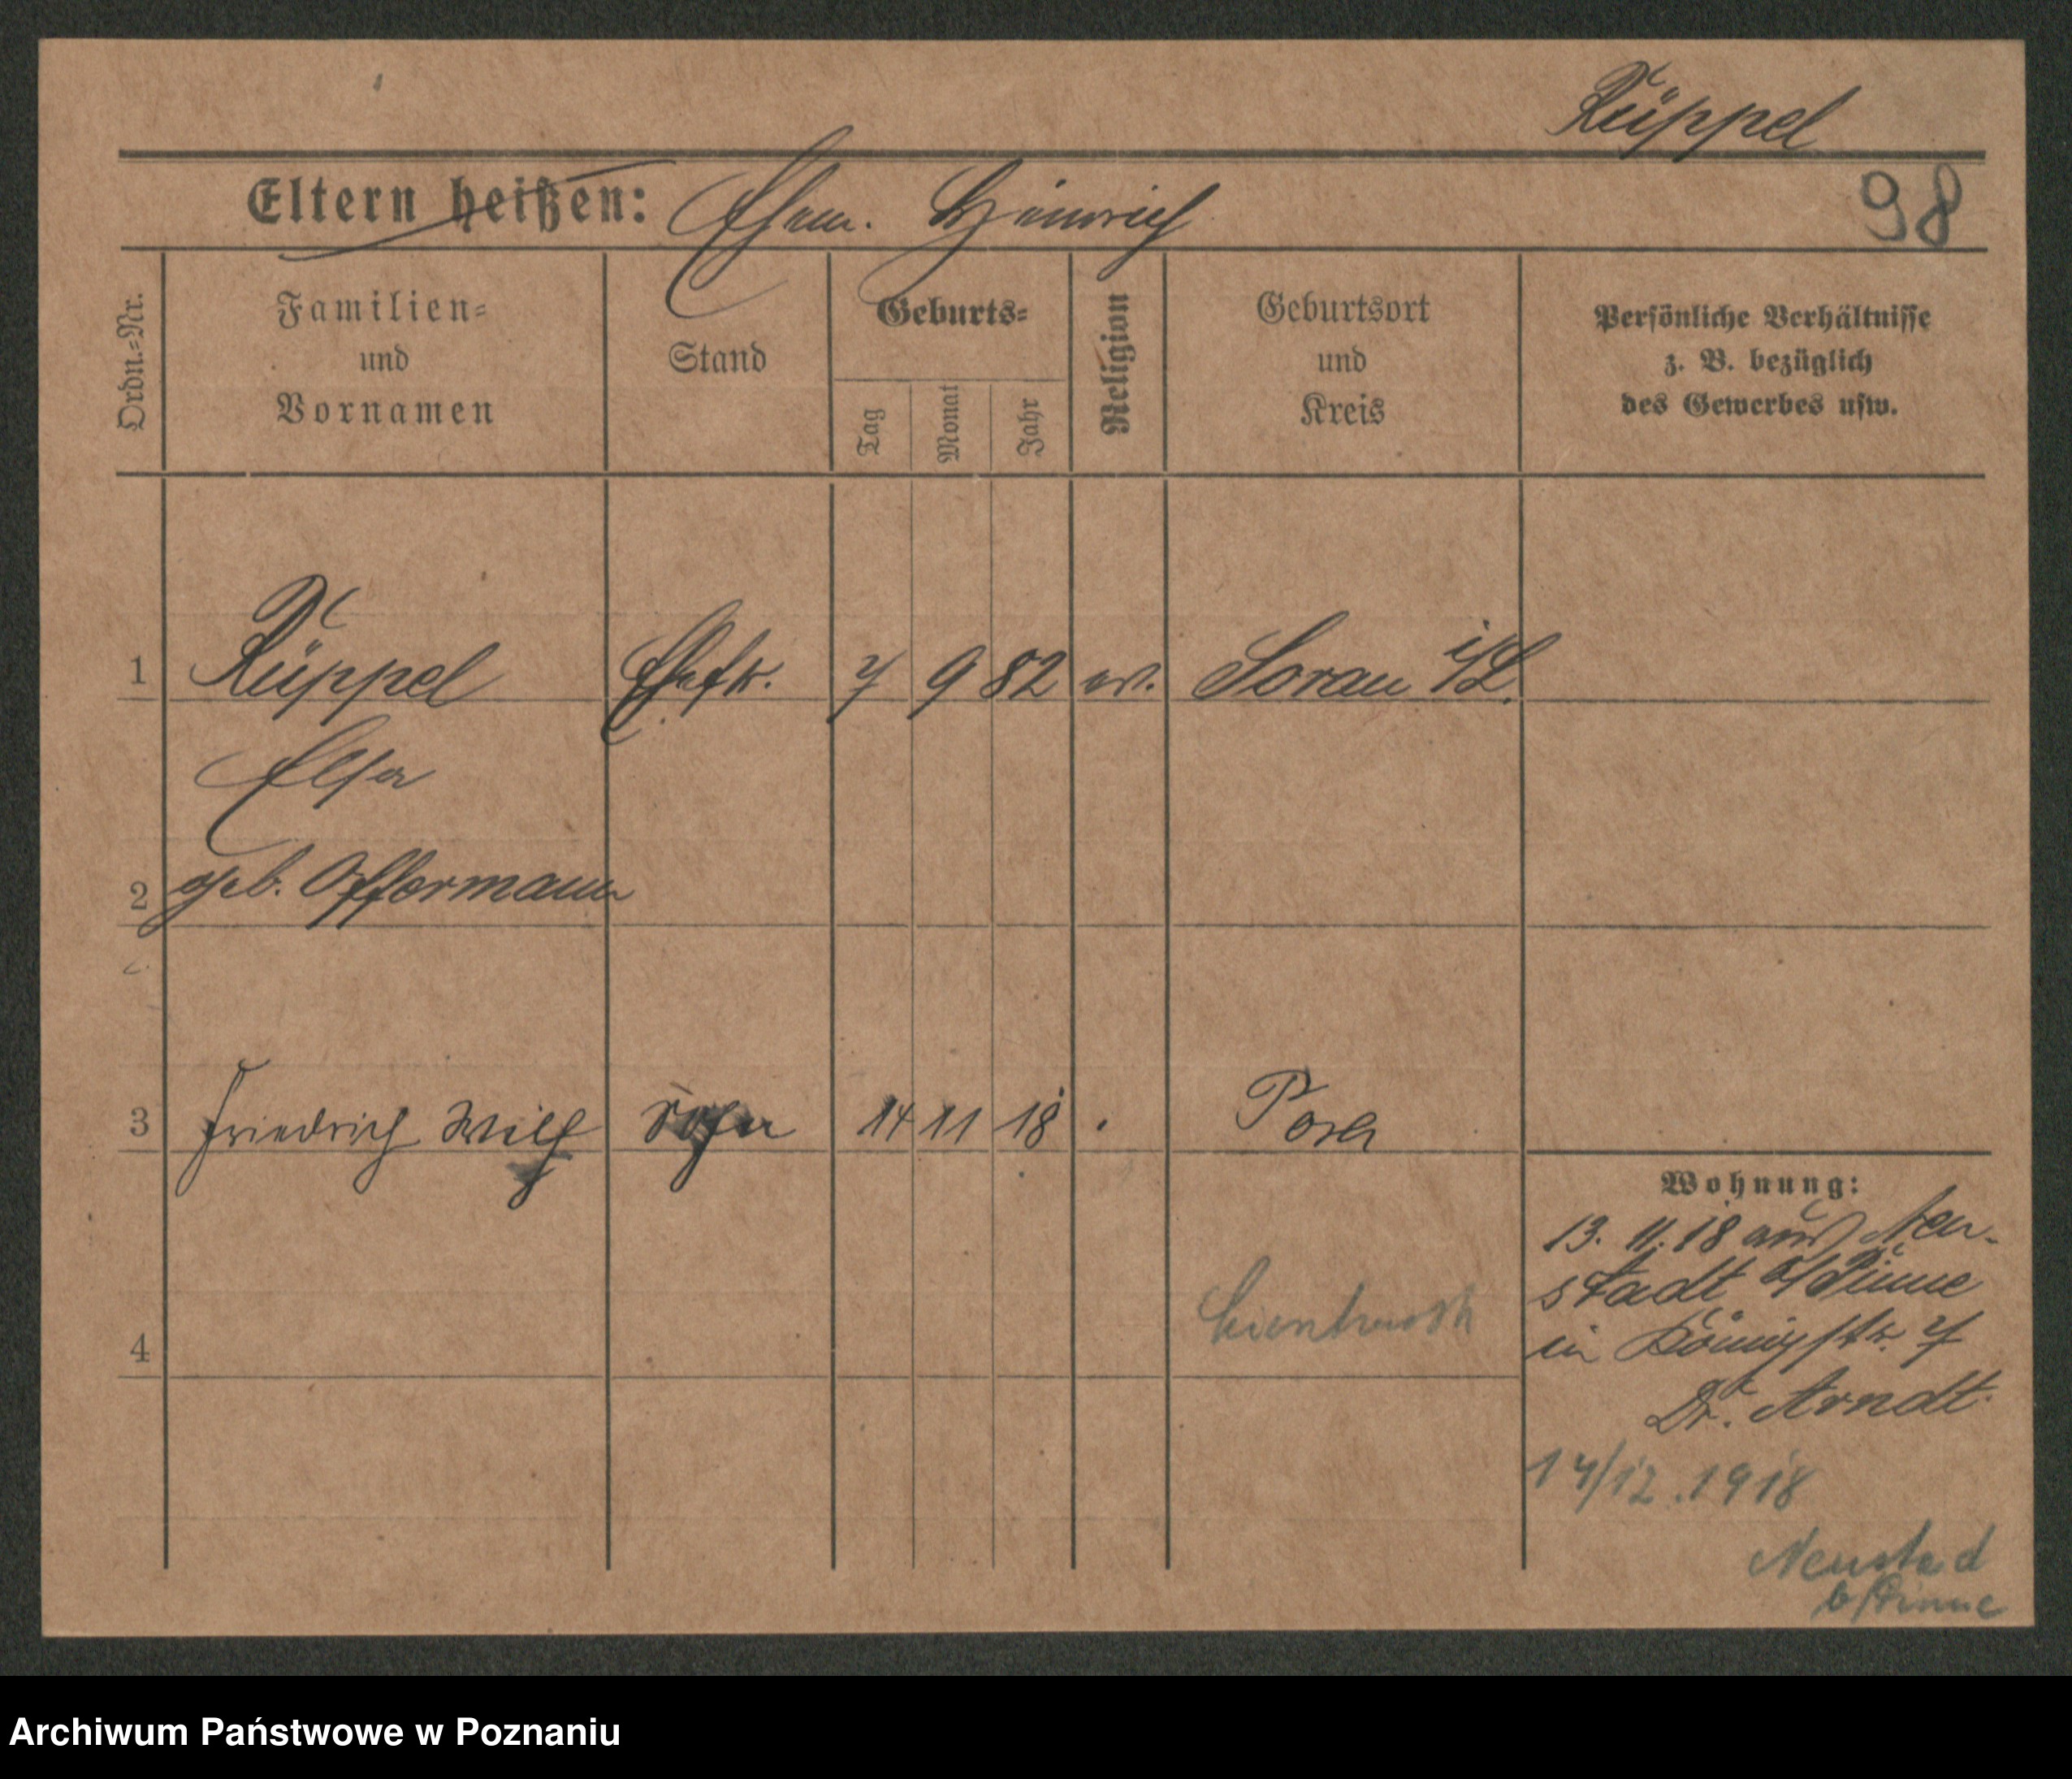 Rüppel
Eltern heißen: Ehem. Heinrich
98
Ordn.=Nr.
Familien=
und
Vornamen
Stand
Geburts=
Tag
Monat
Jahr
Religion
Geburtsort
und
Kreis
Persönliche Verhältnisse
z. B. bezüglich
des Gewerbes usw.
1 Rüppel Ehefr. 7 9 82 ev. Sorau i/L.
Elsa
2 geb. Offermann
3 Friedrich Wilh Sohn 14 11 18 Posen
Wohnung:
13. 11. 18 aus Neu-
stadt b/Pinne
in Königstr. 7
Dr. Arndt.
4
14/12.1918
Neustad
b/Pinne
Archiwum Państwowe w Poznaniu